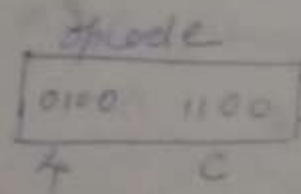 opcode
0100 1100
4 C